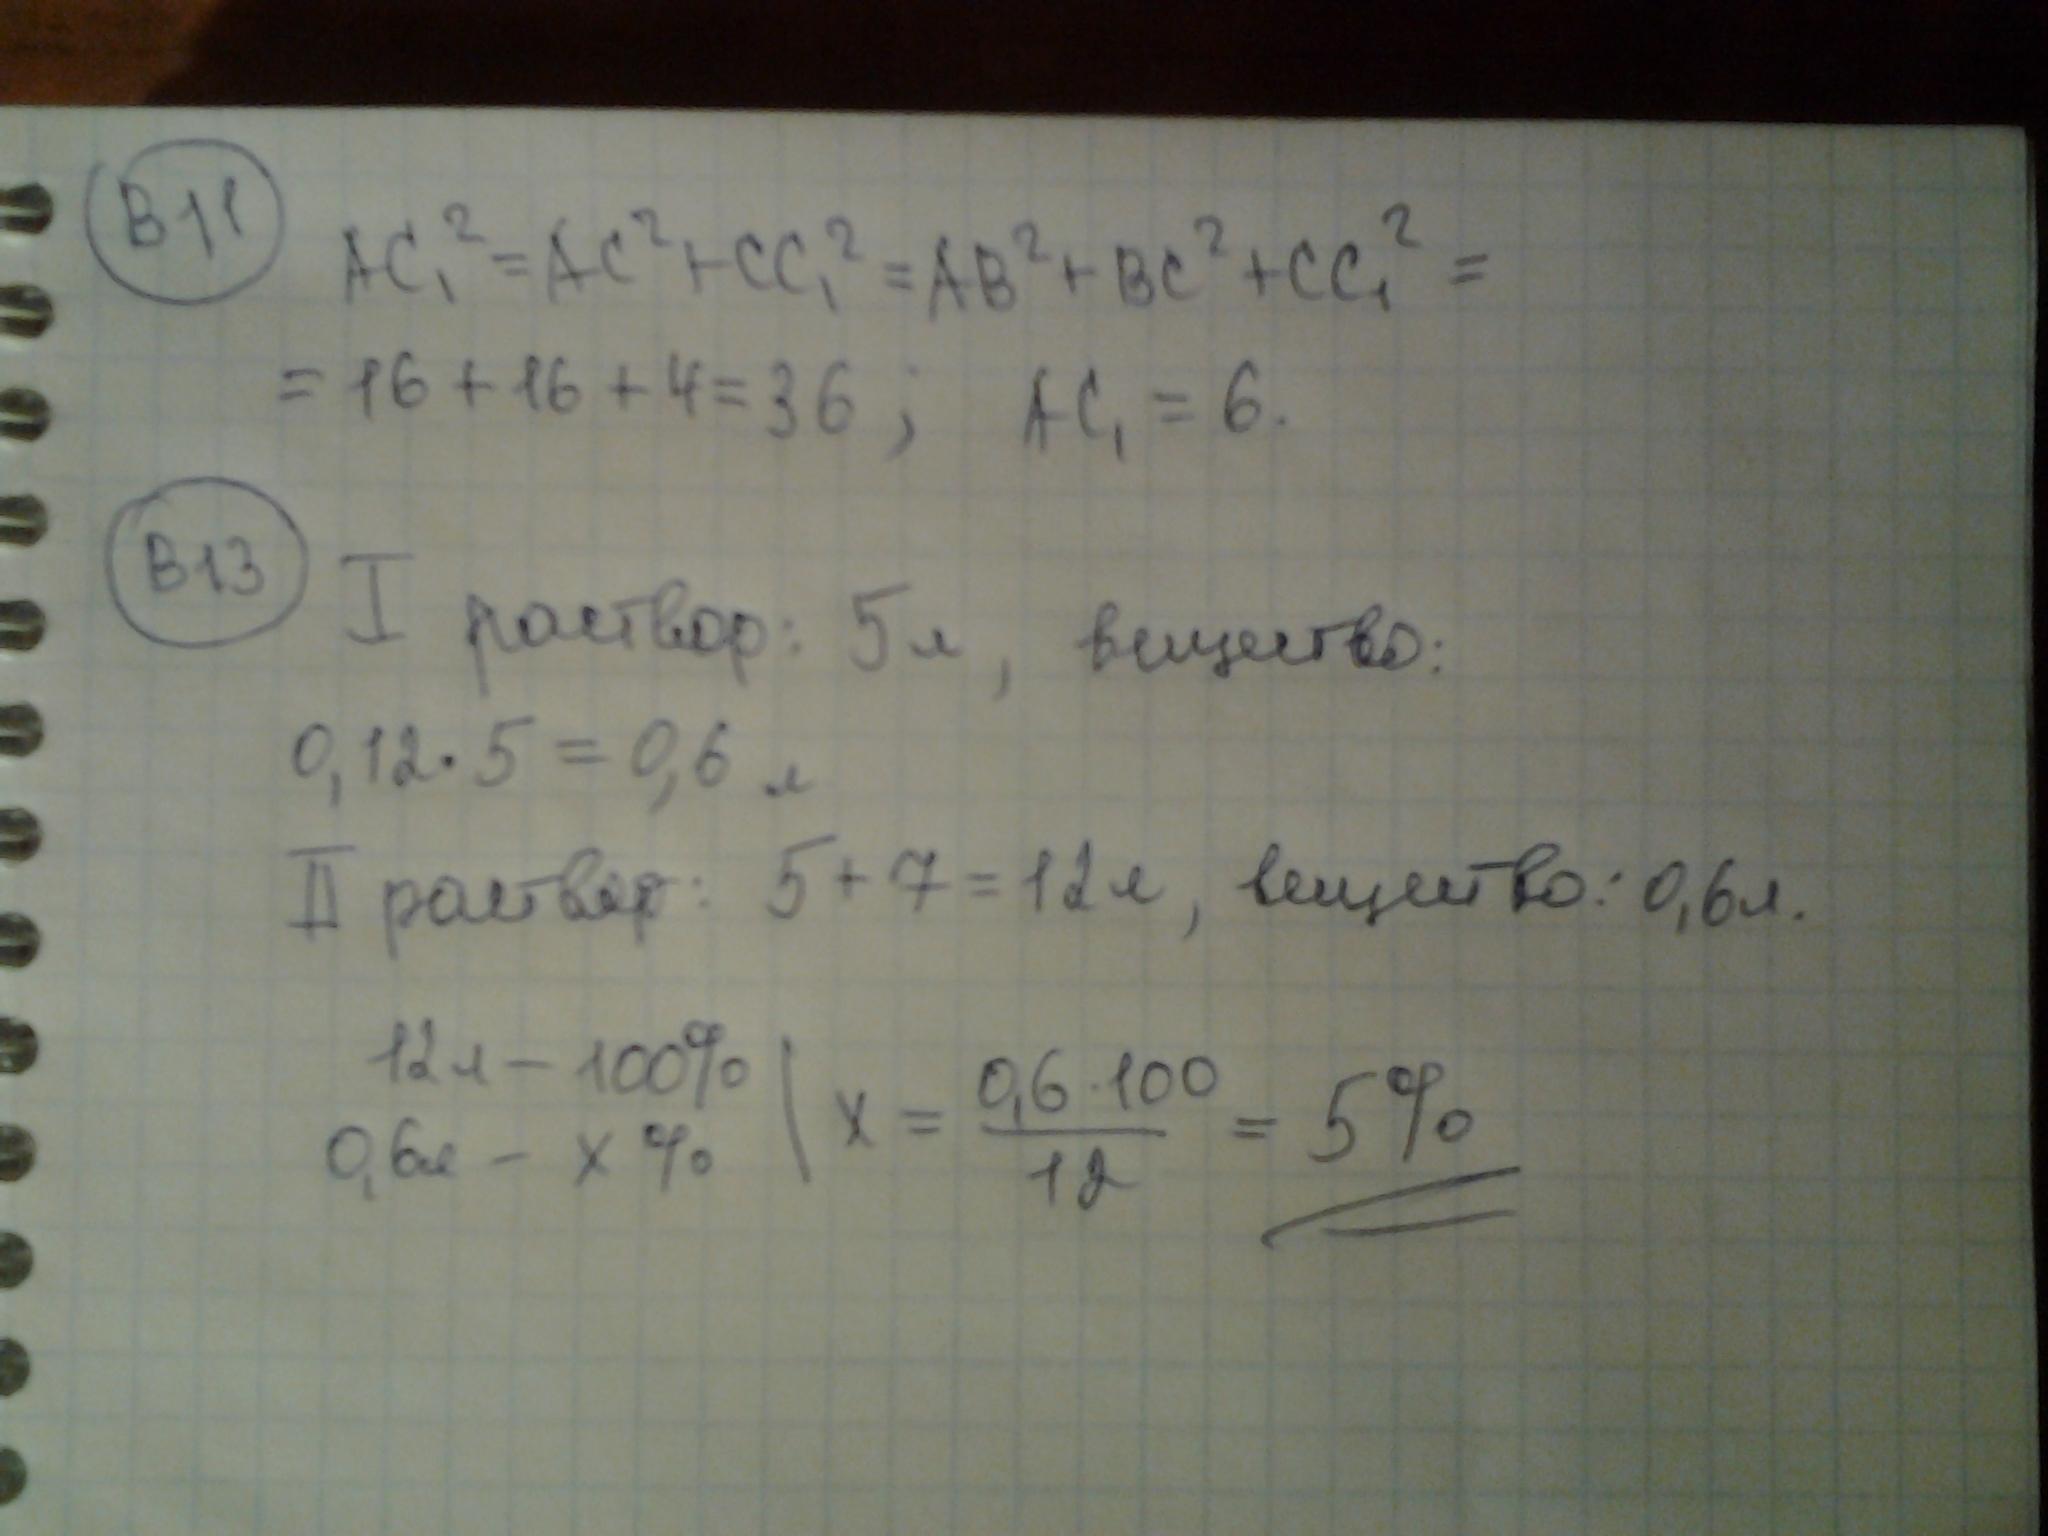 В11
AC₁² = AC² + CC₁² = AB² + BC² + CC₁² =
= 16 + 16 + 4 = 36 ; AC₁ = 6.
В13
I раствор: 5л, вещество:
0,12 · 5 = 0,6 л
II раствор: 5 + 7 = 12л, вещество: 0,6л.
12л – 100% | x = 0,6 · 100 / 12 = 5%
0,6л – x %